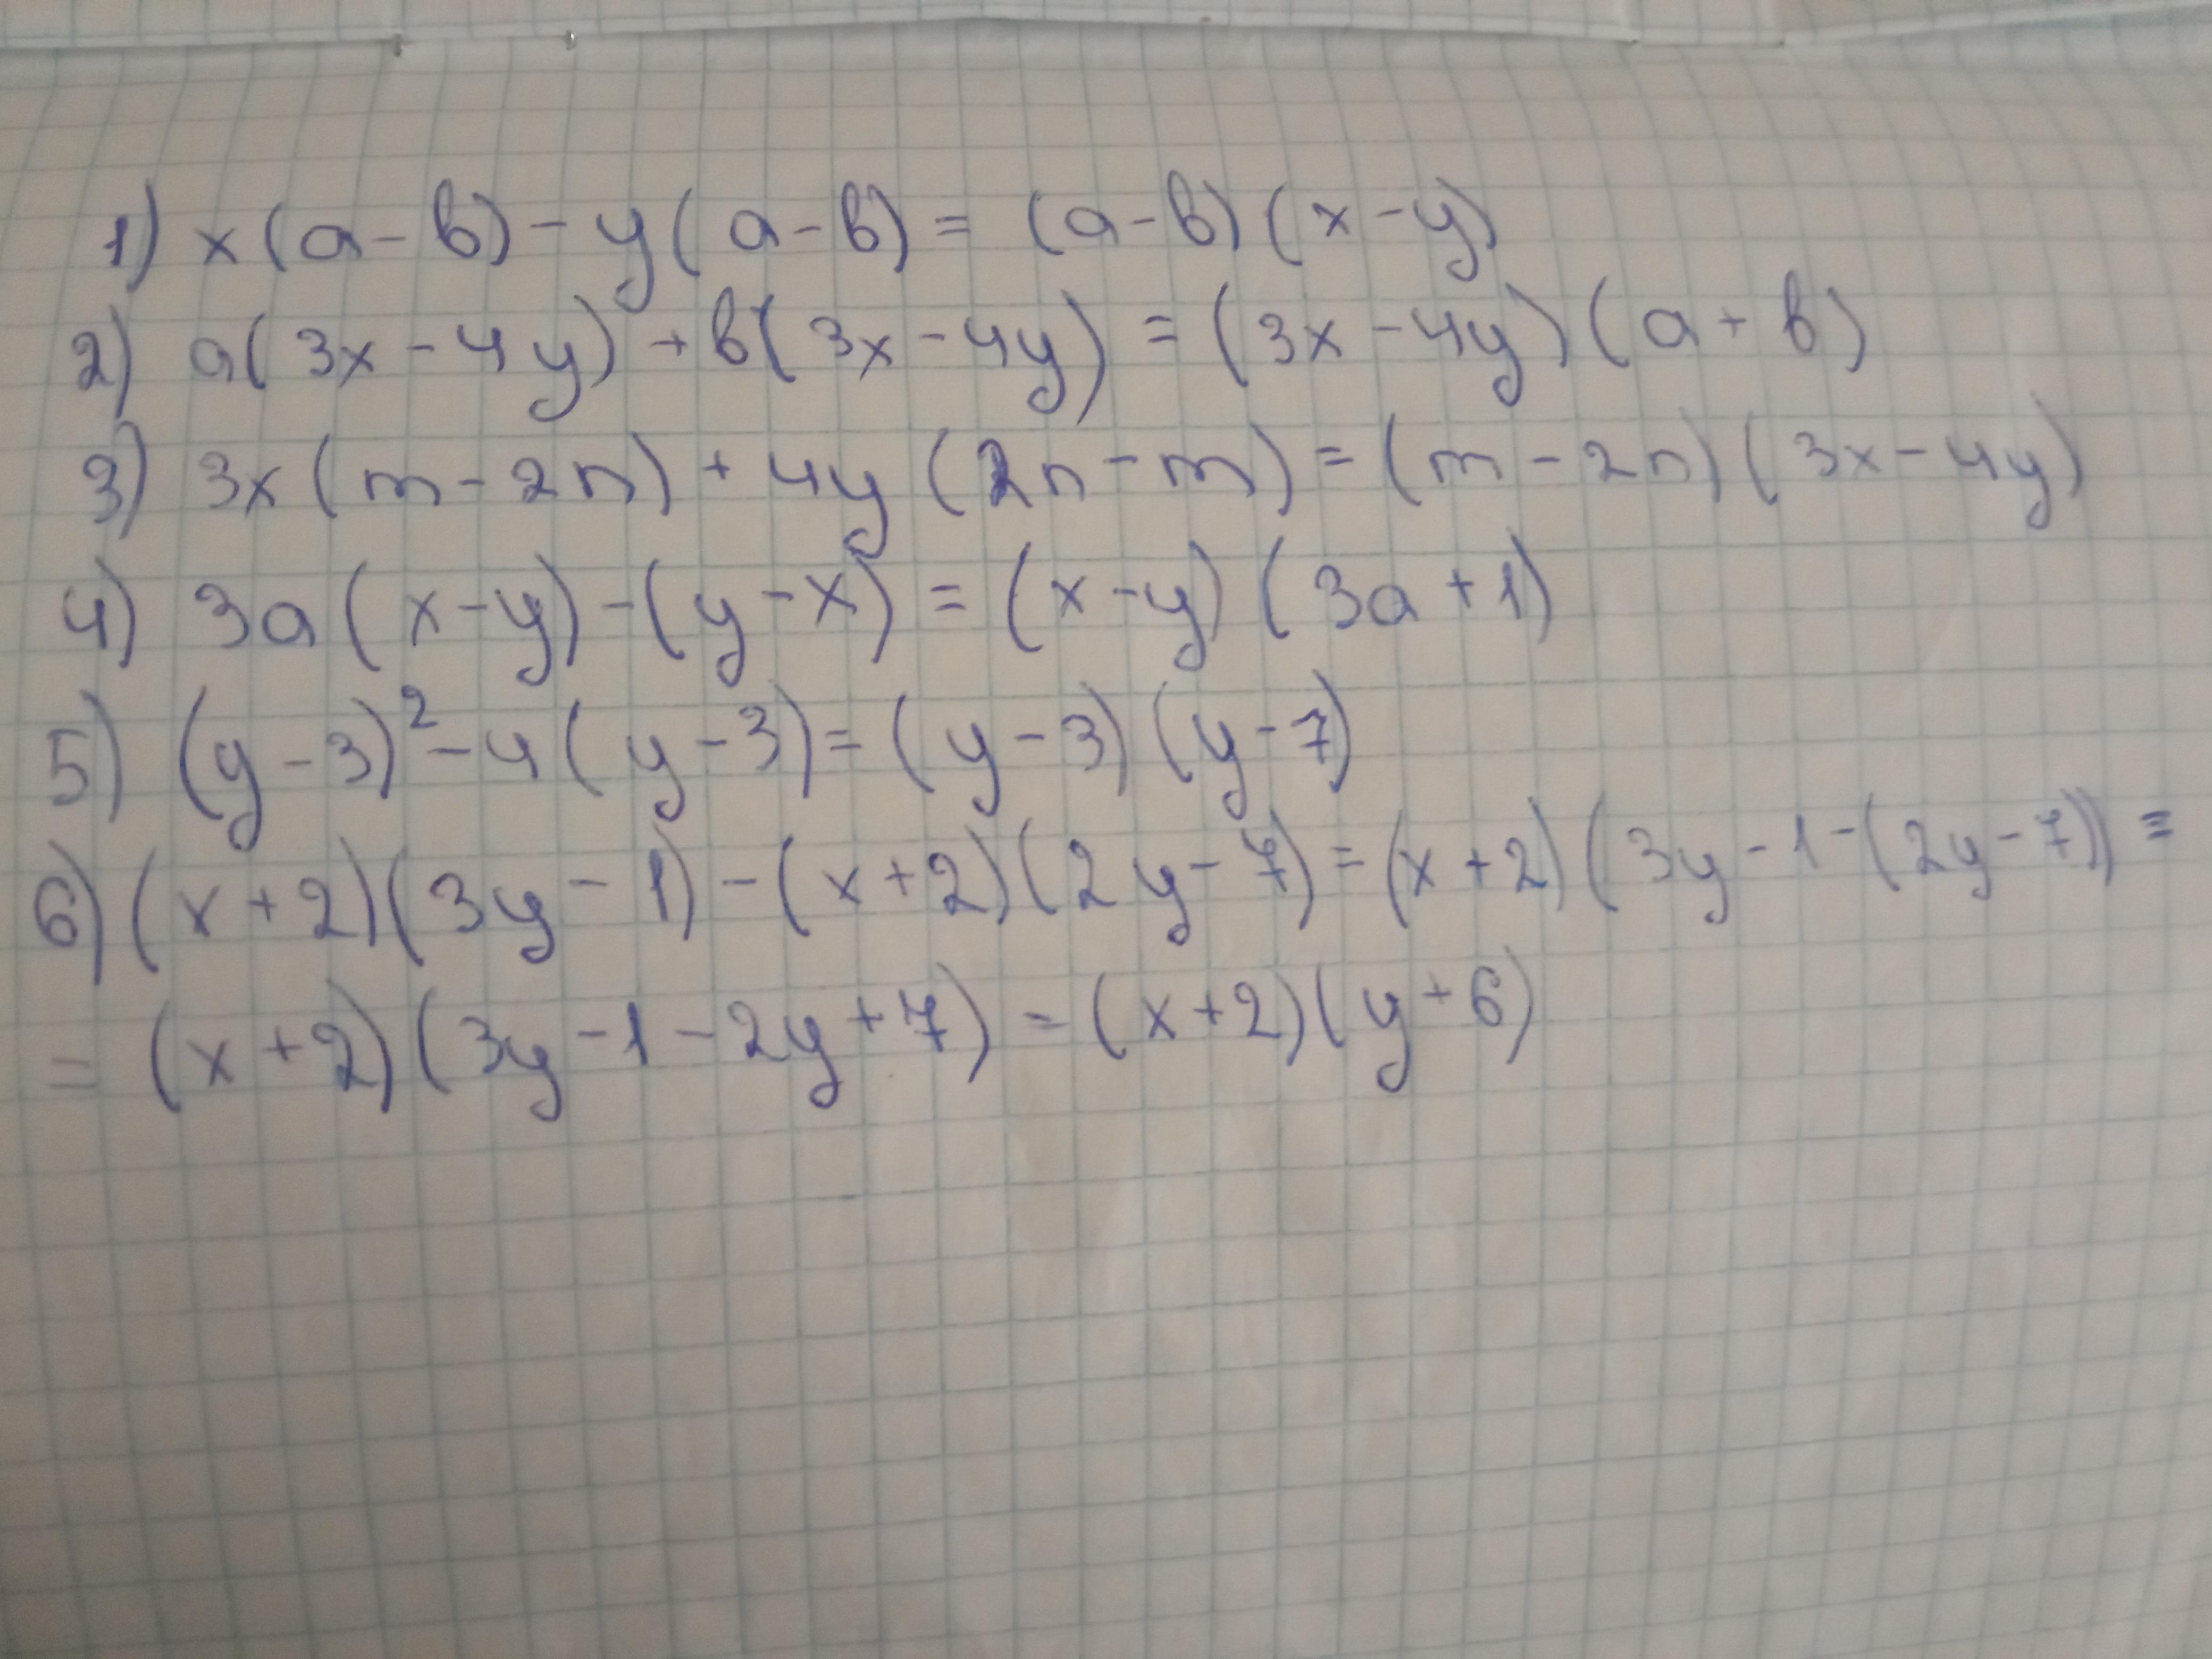 1) x(a-b)-y(a-b)=(a-b)(x-y)
2) a(3x-4y)+b(3x-4y)=(3x-4y)(a+b)
3) 3x(m-2n)+4y(2n-m)=(m-2n)(3x-4y)
4) 3a(x-y)-(y-x)=(x-y)(3a+1)
5) (y-3)²-4(y-3)=(y-3)(y-7)
6) (x+2)(3y-1)-(x+2)(2y-7)=(x+2)(3y-1-(2y-7))=
=(x+2)(3y-1-2y+7)=(x+2)(y+6)